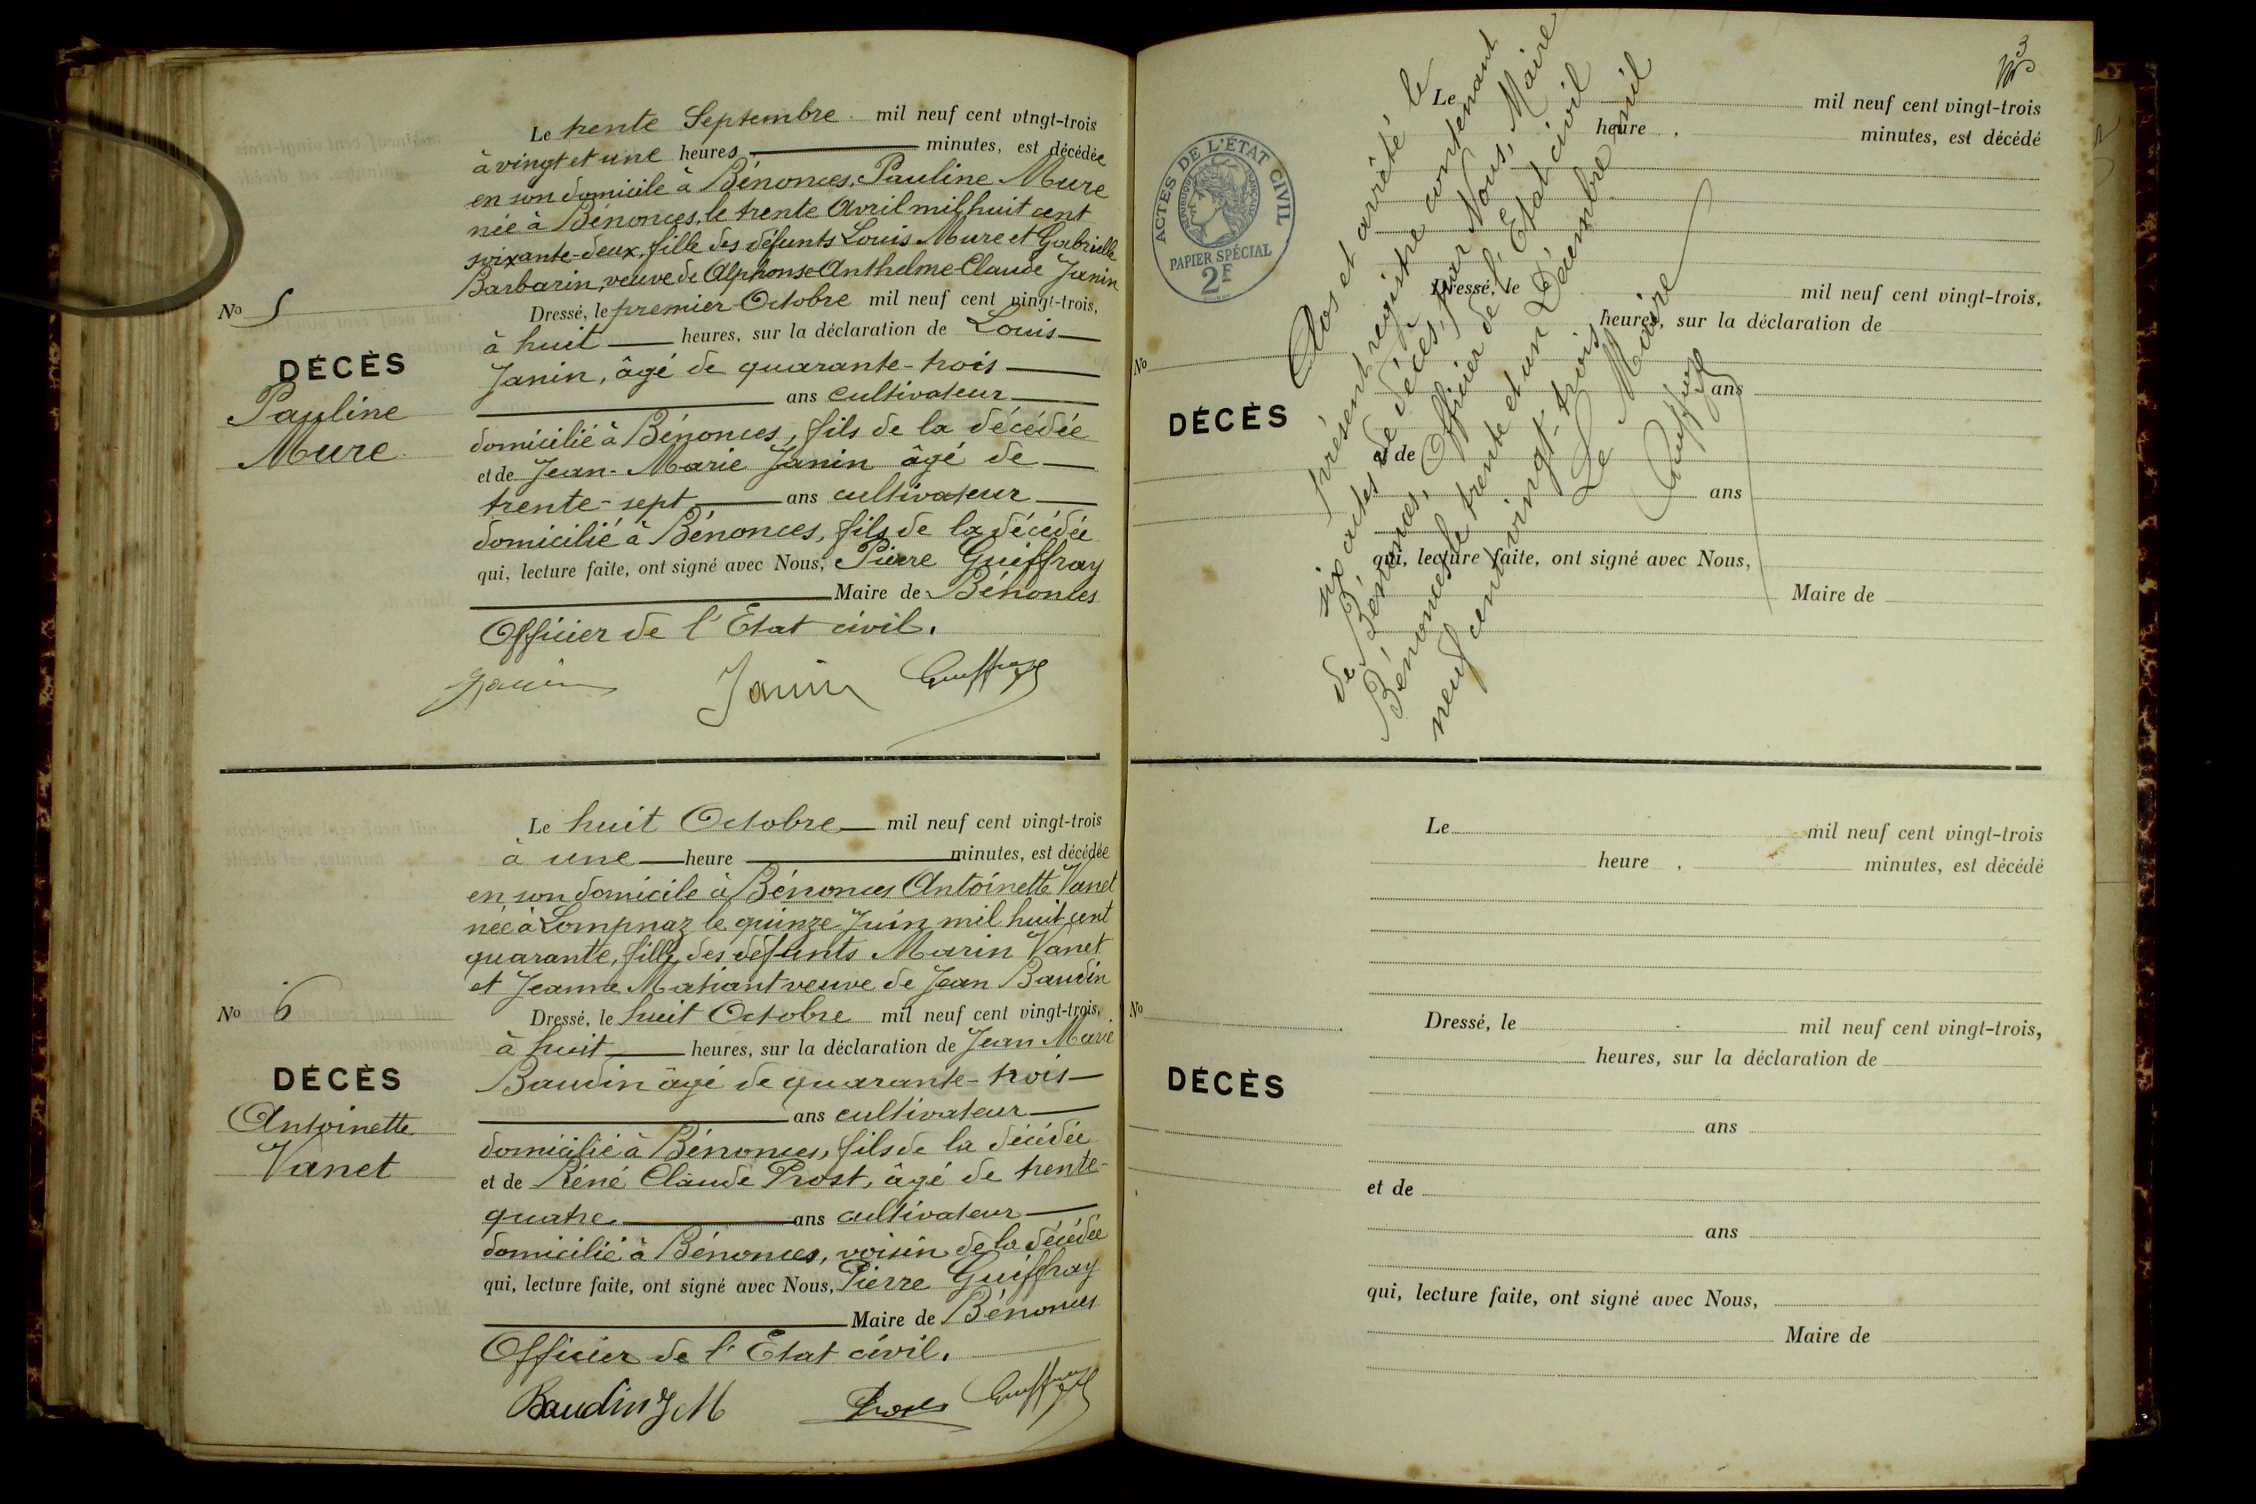 Le trente Septembre mil neuf cent vingt-trois
à vingt et une heures minutes, est décédée
en son domicile à Bénonces, Pauline Mure
née à Bénonces, le trente Avril mil huit cent
soixante-deux, fille des défunts Louis Mure et Gabrielle
Barbarin, veuve de Alphonse-Anthelme-Claude Janin
No 5
Dressé, le premier Octobre mil neuf cent vingt-trois,
à huit heures, sur la déclaration de Louis
DÉCÈS
Pauline
Mure
Janin, âgé de quarante-trois
ans cultivateur
domicilié à Bénonces, fils de la décédée
et de Jean-Marie Janin âgé de
trente-sept ans cultivateur
domicilié à Bénonces, fils de la décédée
qui, lecture faite, ont signé avec Nous, Pierre Guiffray
Maire de Bénonces
Officier de l'Etat civil.
Janin Janin Guiffray
Le huit Octobre mil neuf cent vingt-trois
à une heure minutes, est décédée
en son domicile à Bénonces Antoinette Vanet
née à Lompnaz le quinze Juin mil huit cent
quarante, fille des défunts Marin Vanet
et Jeanne Matiant veuve de Jean Baudin
No 6
Dressé, le huit Octobre mil neuf cent vingt-trois,
à huit heures, sur la déclaration de Jean Marie
DÉCÈS
Antoinette
Vanet
Baudin âgé de quarante-trois
ans cultivateur
domicilié à Bénonces, fils de la décédée
et de Réné Claude Prost, âgé de trente-
quatre ans cultivateur
domicilié à Bénonces, voisin de la décédée
qui, lecture faite, ont signé avec Nous, Pierre Guiffray
Maire de Bénonces
Officier de l'Etat civil.
Baudin J M Prost Guiffray
3
ACTES DE L'ÉTAT CIVIL
RÉPUBLIQUE FRANÇAISE
PAPIER SPÉCIAL
2F
Clos et arrêté le
présent registre contenant
six actes de décès, par Nous, Maire
de Bénonces, Officier de l'Etat civil
Bénonces le trente et un Décembre mil
neuf cent vingt-trois
Le Maire
Guiffray
Le mil neuf cent vingt-trois
heure minutes, est décédé
Dressé, le mil neuf cent vingt-trois,
heures, sur la déclaration de
No
DÉCÈS
ans
et de
ans
qui, lecture faite, ont signé avec Nous,
Maire de
Le mil neuf cent vingt-trois
heure minutes, est décédé
No
Dressé, le mil neuf cent vingt-trois,
heures, sur la déclaration de
DÉCÈS
ans
et de
ans
qui, lecture faite, ont signé avec Nous,
Maire de